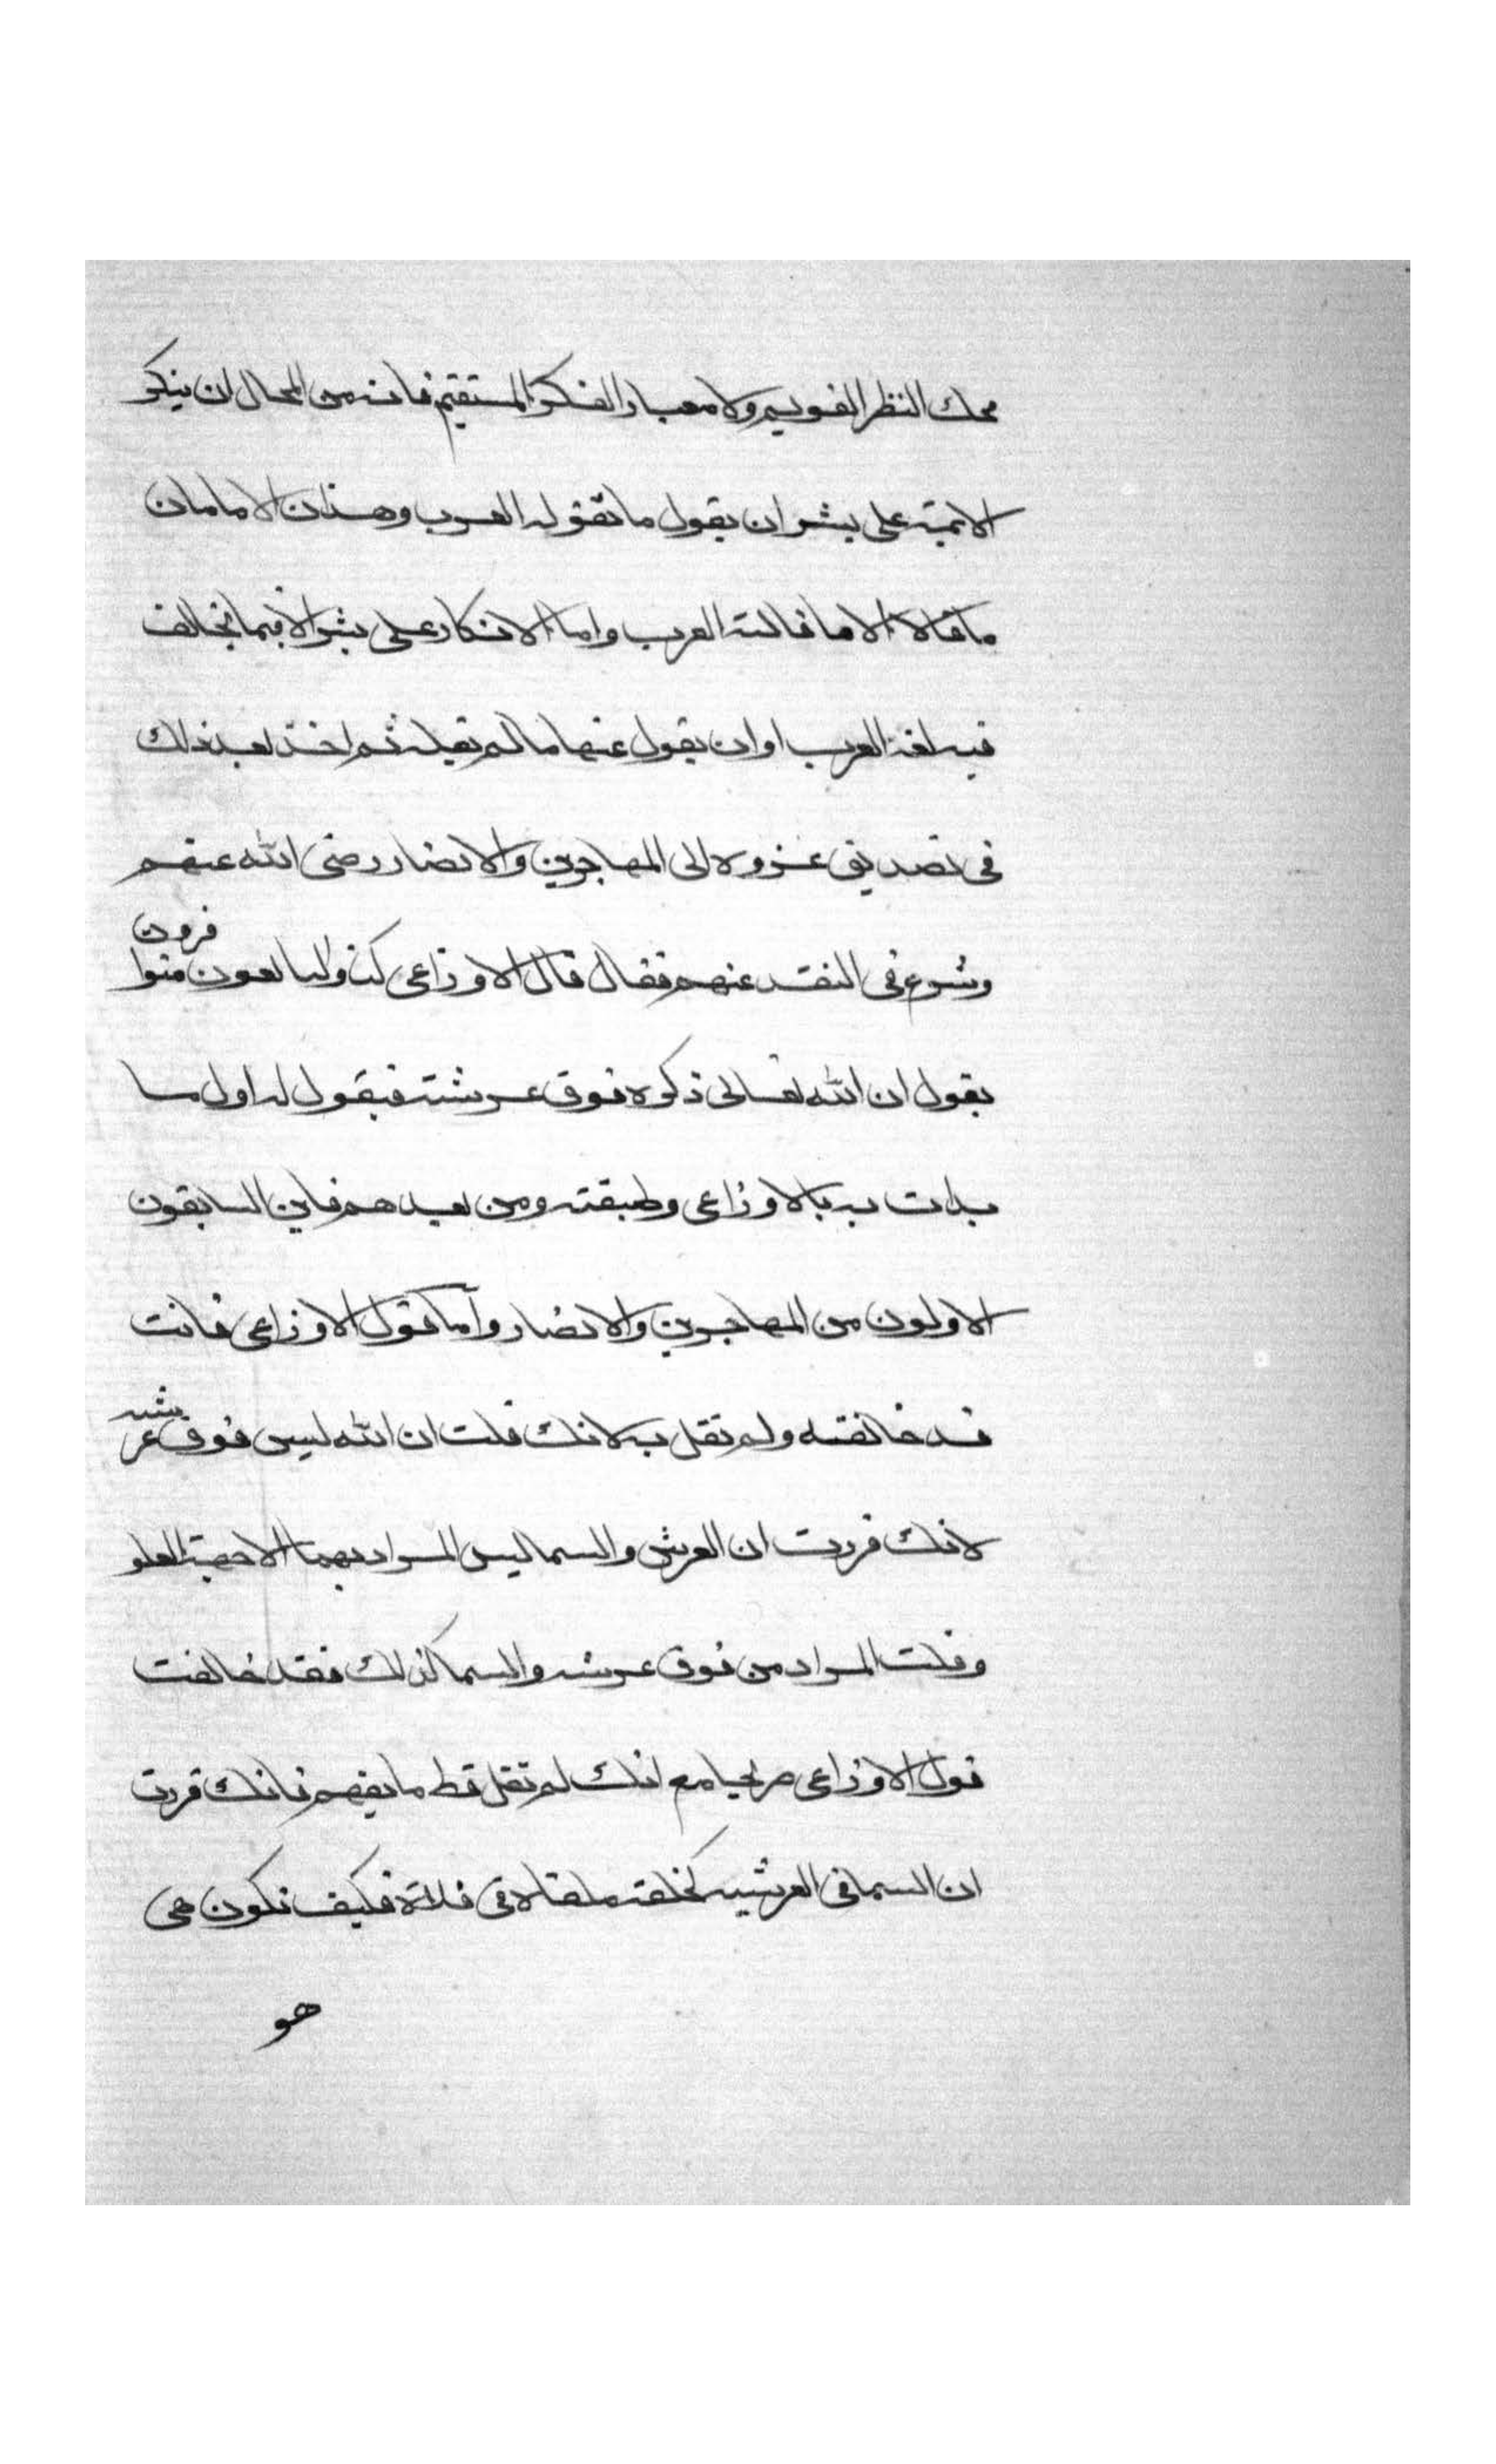 محك النظر القويم ولا معيار الفكر المستقيم فانه من المحال ان ينكر
الائمة على بشر ان يقول ما تقوله العرب وهذان الامامان
ما قالا الا ما قالته العرب وما الانكار على بشر الا فيما يخالف
فيه لغة العرب او ان يقول عنها ما لم تقله ثم اخذ بعد ذلك
فى تصديق عزوه الى المهاجرين والانصار رضى الله عنهم
وشرع فى النقد عنهم فقال قال الاوزاعى كنا والتابعون متوافرون
يقول ان الله تعالى ذكره فوق عرشه فيقول له اول ما
بدات به بالاوزاعى وطبقته ومن بعدهم فاين السابقون
الاولون من المهاجرين والانصار واما قول الاوزاعى فانت
قد خالفته ولم تقل به لانك قلت ان الله ليس فوق عرشه
لانك قررت ان العرش والسما ليس المراد بهما الا جهة العلو
وقلت المراد من فوق عرشه والسما كذلك فقد خالفت
قول الاوزاعى صريحا مع انك لم تقل قط ما يفهم فانك قررت
ان السما فى العرش كحلقة ملقاة فى فلاة فكيف تكون هى
هو